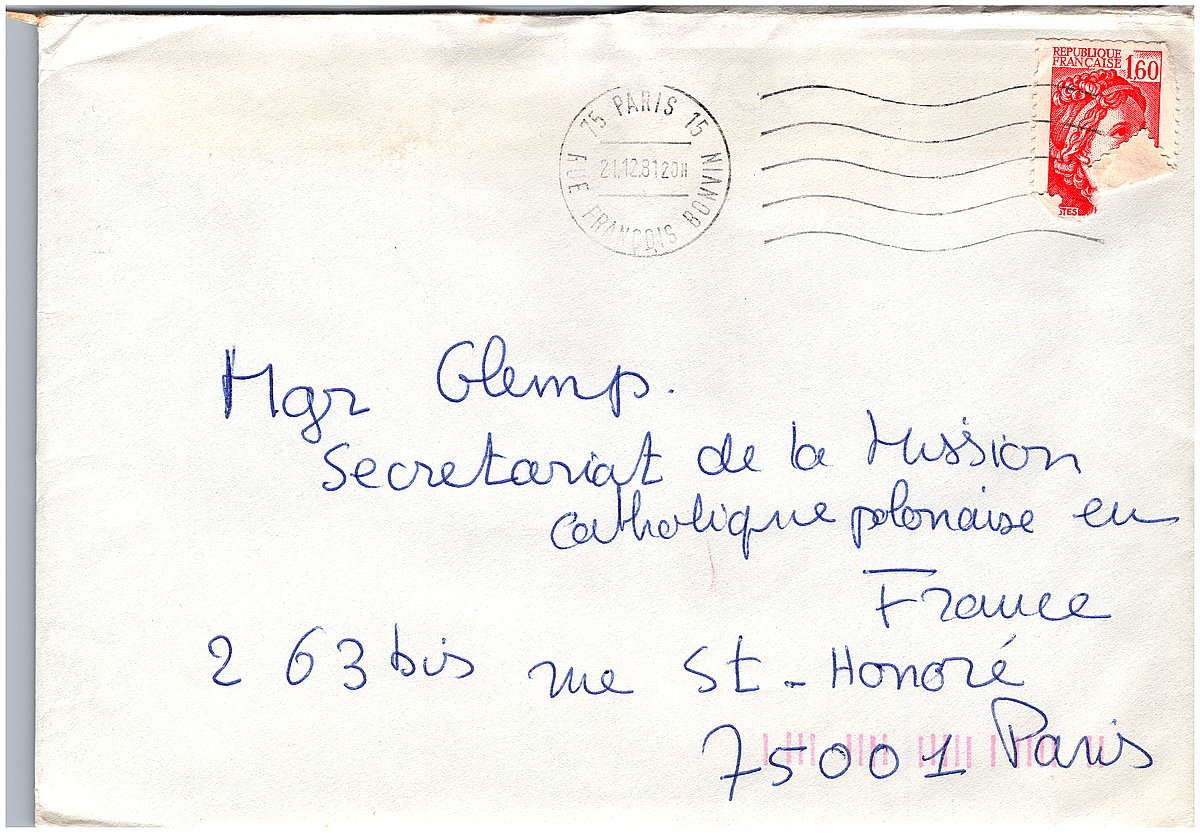 REPUBLIQUE
FRANÇAISE 1,60
75 PARIS 15
21.12.81 20H
RUE FRANÇOIS BONVIN
Mgr Glemp.
Secretariat de la Mission
catholique polonaise en
France
263 bis rue St-Honoré
75001 Paris